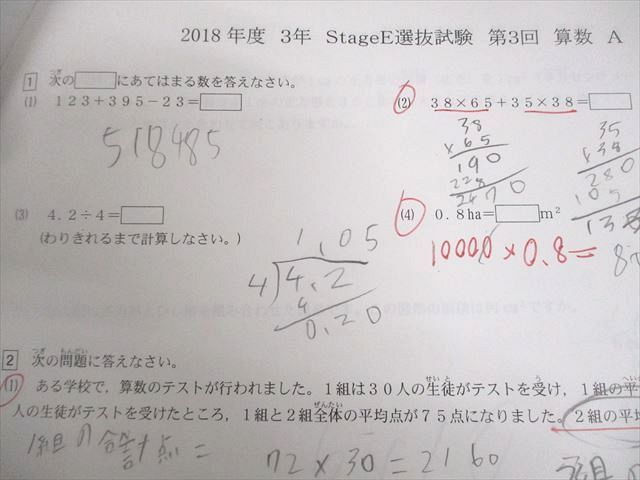 2018年度 3年 StageE選抜試験 第3回 算数 A
1 次の□にあてはまる数を答えなさい。
(1) 123+395-23=□
518485
(2) 38×65+35×38=□
38
×65
190
228
2470
35
×38
280
105
(3) 4.2÷4=□
(わりきれるまで計算しなさい。)
1.05
4 4.2
4
0.20
(4) 0.8ha=□m²
10000×0.8=
2 次の問題に答えなさい。
(1) ある学校で,算数のテストが行われました。1組は30人の生徒がテストを受け,1組の平
人の生徒がテストを受けたところ,1組と2組全体の平均点が75点になりました。2組の平均
1組の合計点=
72×30=2160